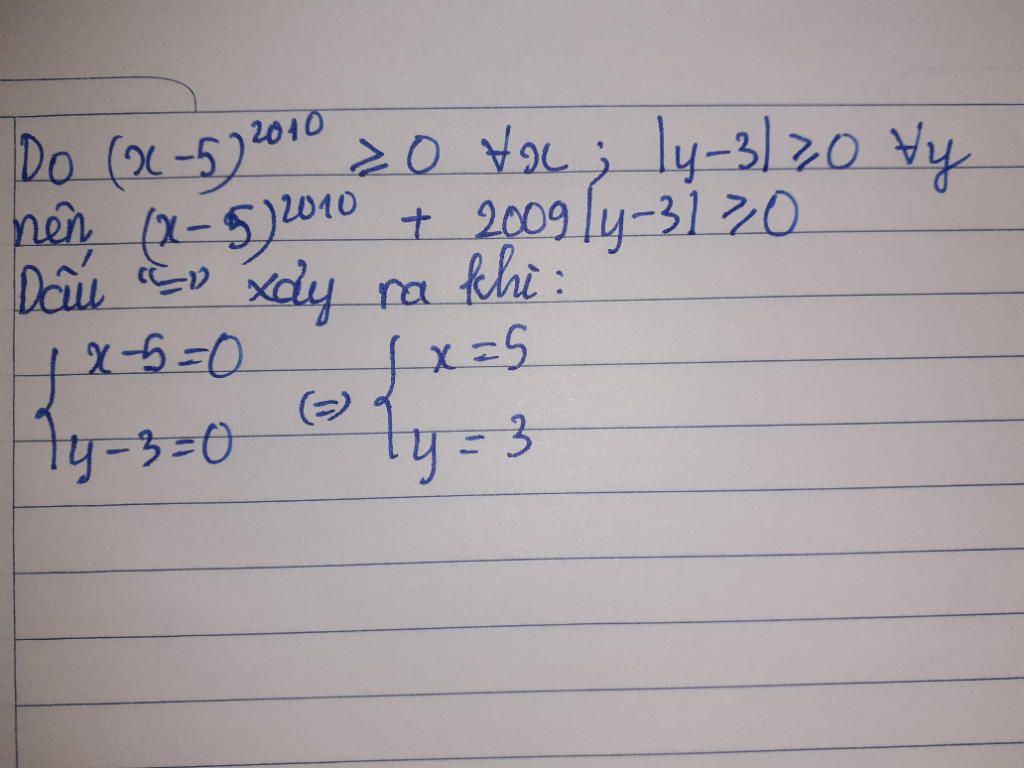 Do (x-5)²⁰¹⁰ ⩾ 0 ∀x ; |y-3| ⩾ 0 ∀y
nên (x-5)²⁰¹⁰ + 2009|y-3| ⩾ 0
Dấu "=" xảy ra khi:
{ x-5=0 (=) { x=5
{ y-3=0 (=) { y=3